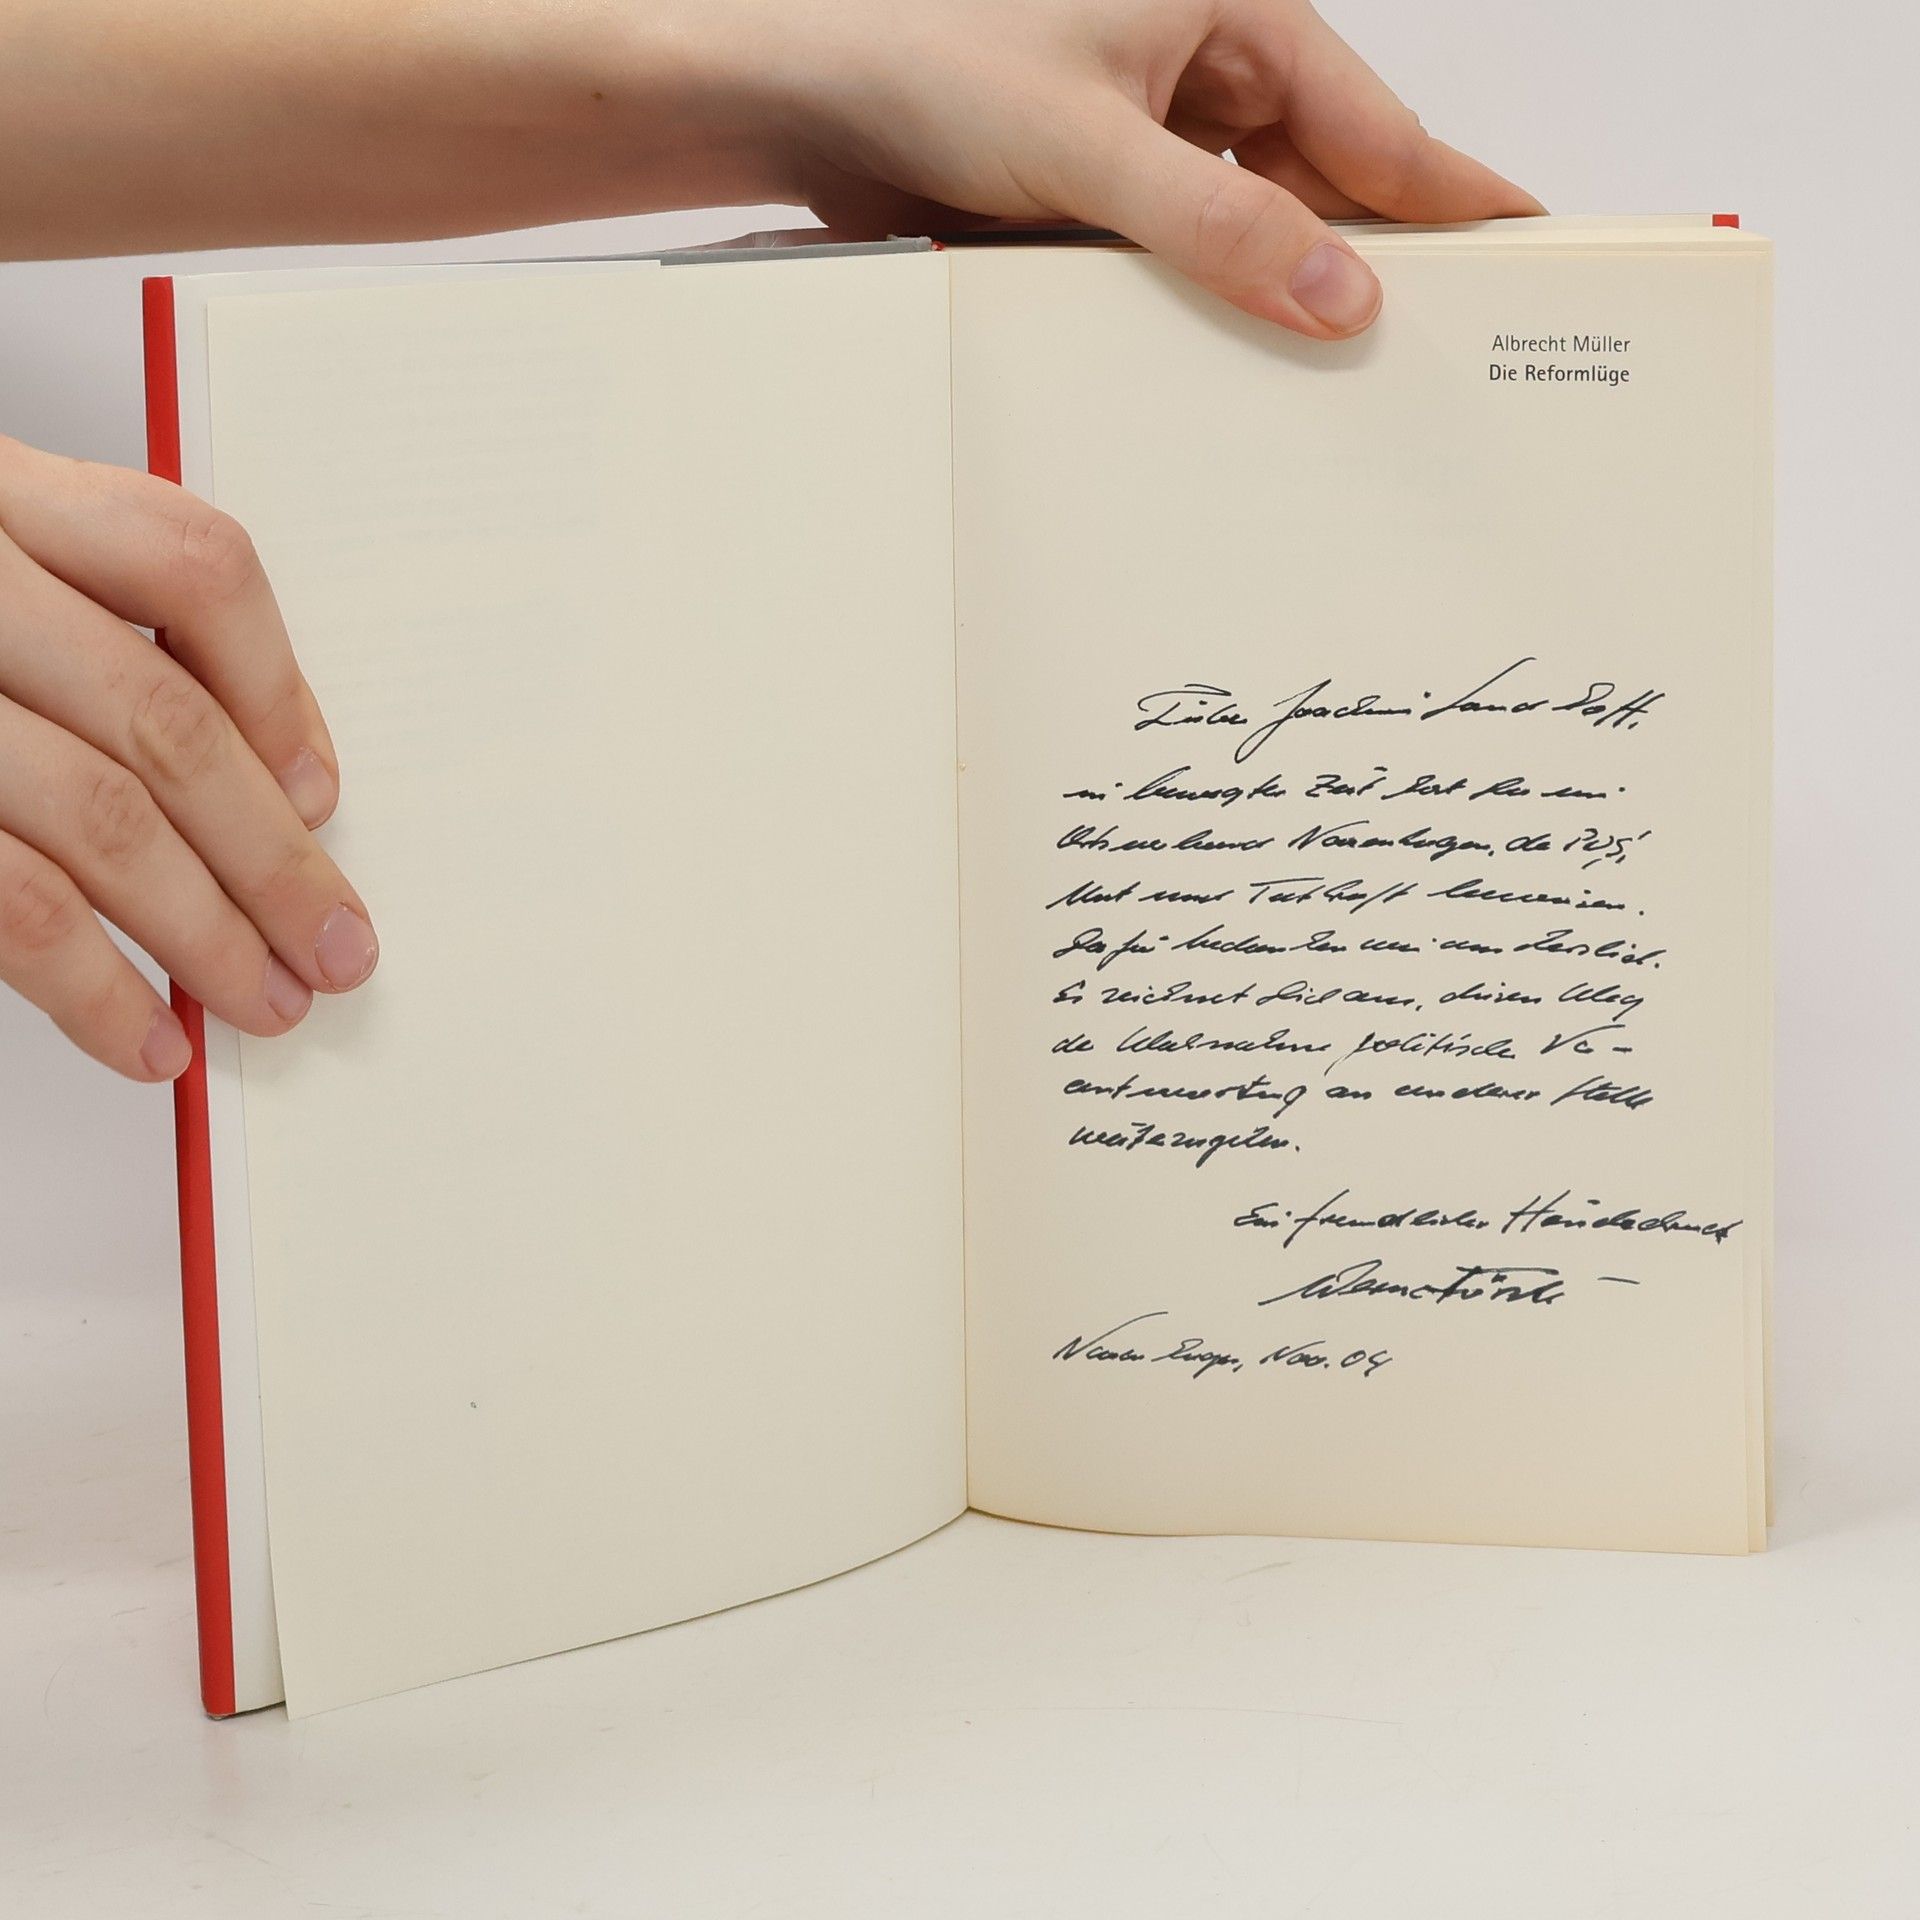 Albrecht Müller
Die Reformlüge
Lieber Joachim
in bewegter Zeit hast Du im
Ortsverband der PDS,
Mut und Tatkraft bewiesen.
Dafür bedanken wir uns herzlich.
Es zeichnet Dich aus, diesen Weg
der Wahrnahme politischer Ver-
antwortung an anderer Stelle
weiterzugehen.
Ein freundlicher Händedruck
Nov. 04